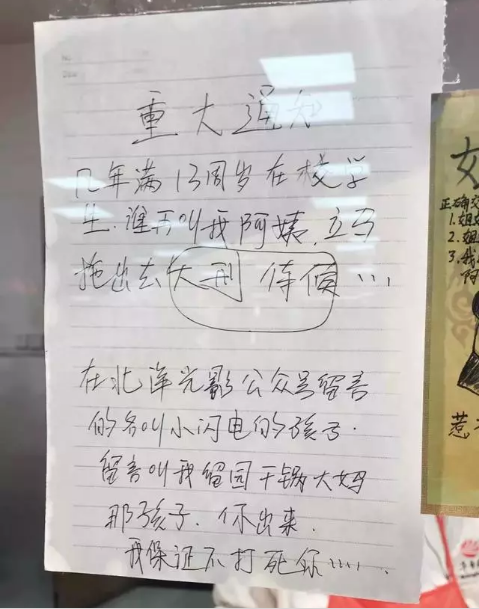 重大通知
凡年满13周岁在校学
生.谁再叫我阿姨.立马
拖出去大刑侍候...
在北洋光影公众号留言
的名叫小闪电的孩子.
留言叫我留园干锅大妈
那孩子.你出来.
我保证不打死你.....
正确交
1.姐
2.姐
3.我
阿
惹